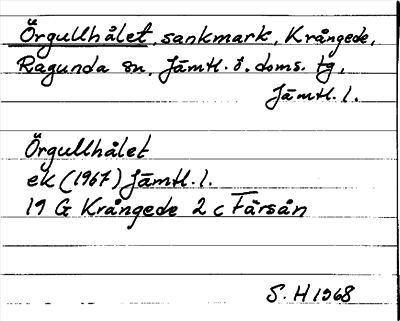 Örgullhålet, sankmark, Krångede,
Ragunda sn, Jämtl. ö. doms. tg,
Jämtl. l.
Örgullhålet
ek (1967) Jämtl. l.
19 G Krångede 2 c Färsån
S. H 1968